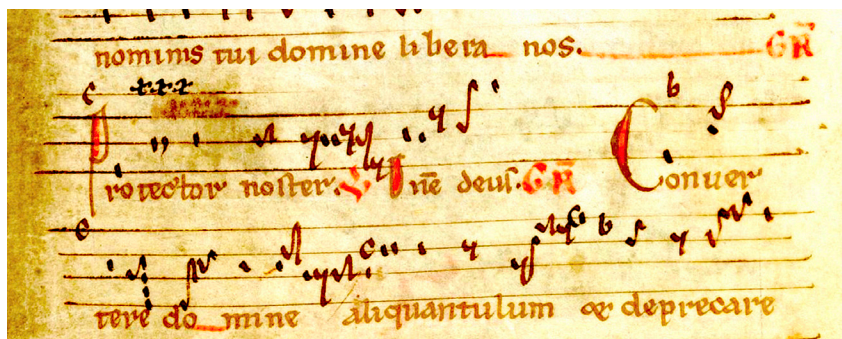 nominis tui domine libera nos. GR̄
Protector noster. V Dn̄e deus. GR̄ Conuer
tere do mine aliquantulum & deprecare